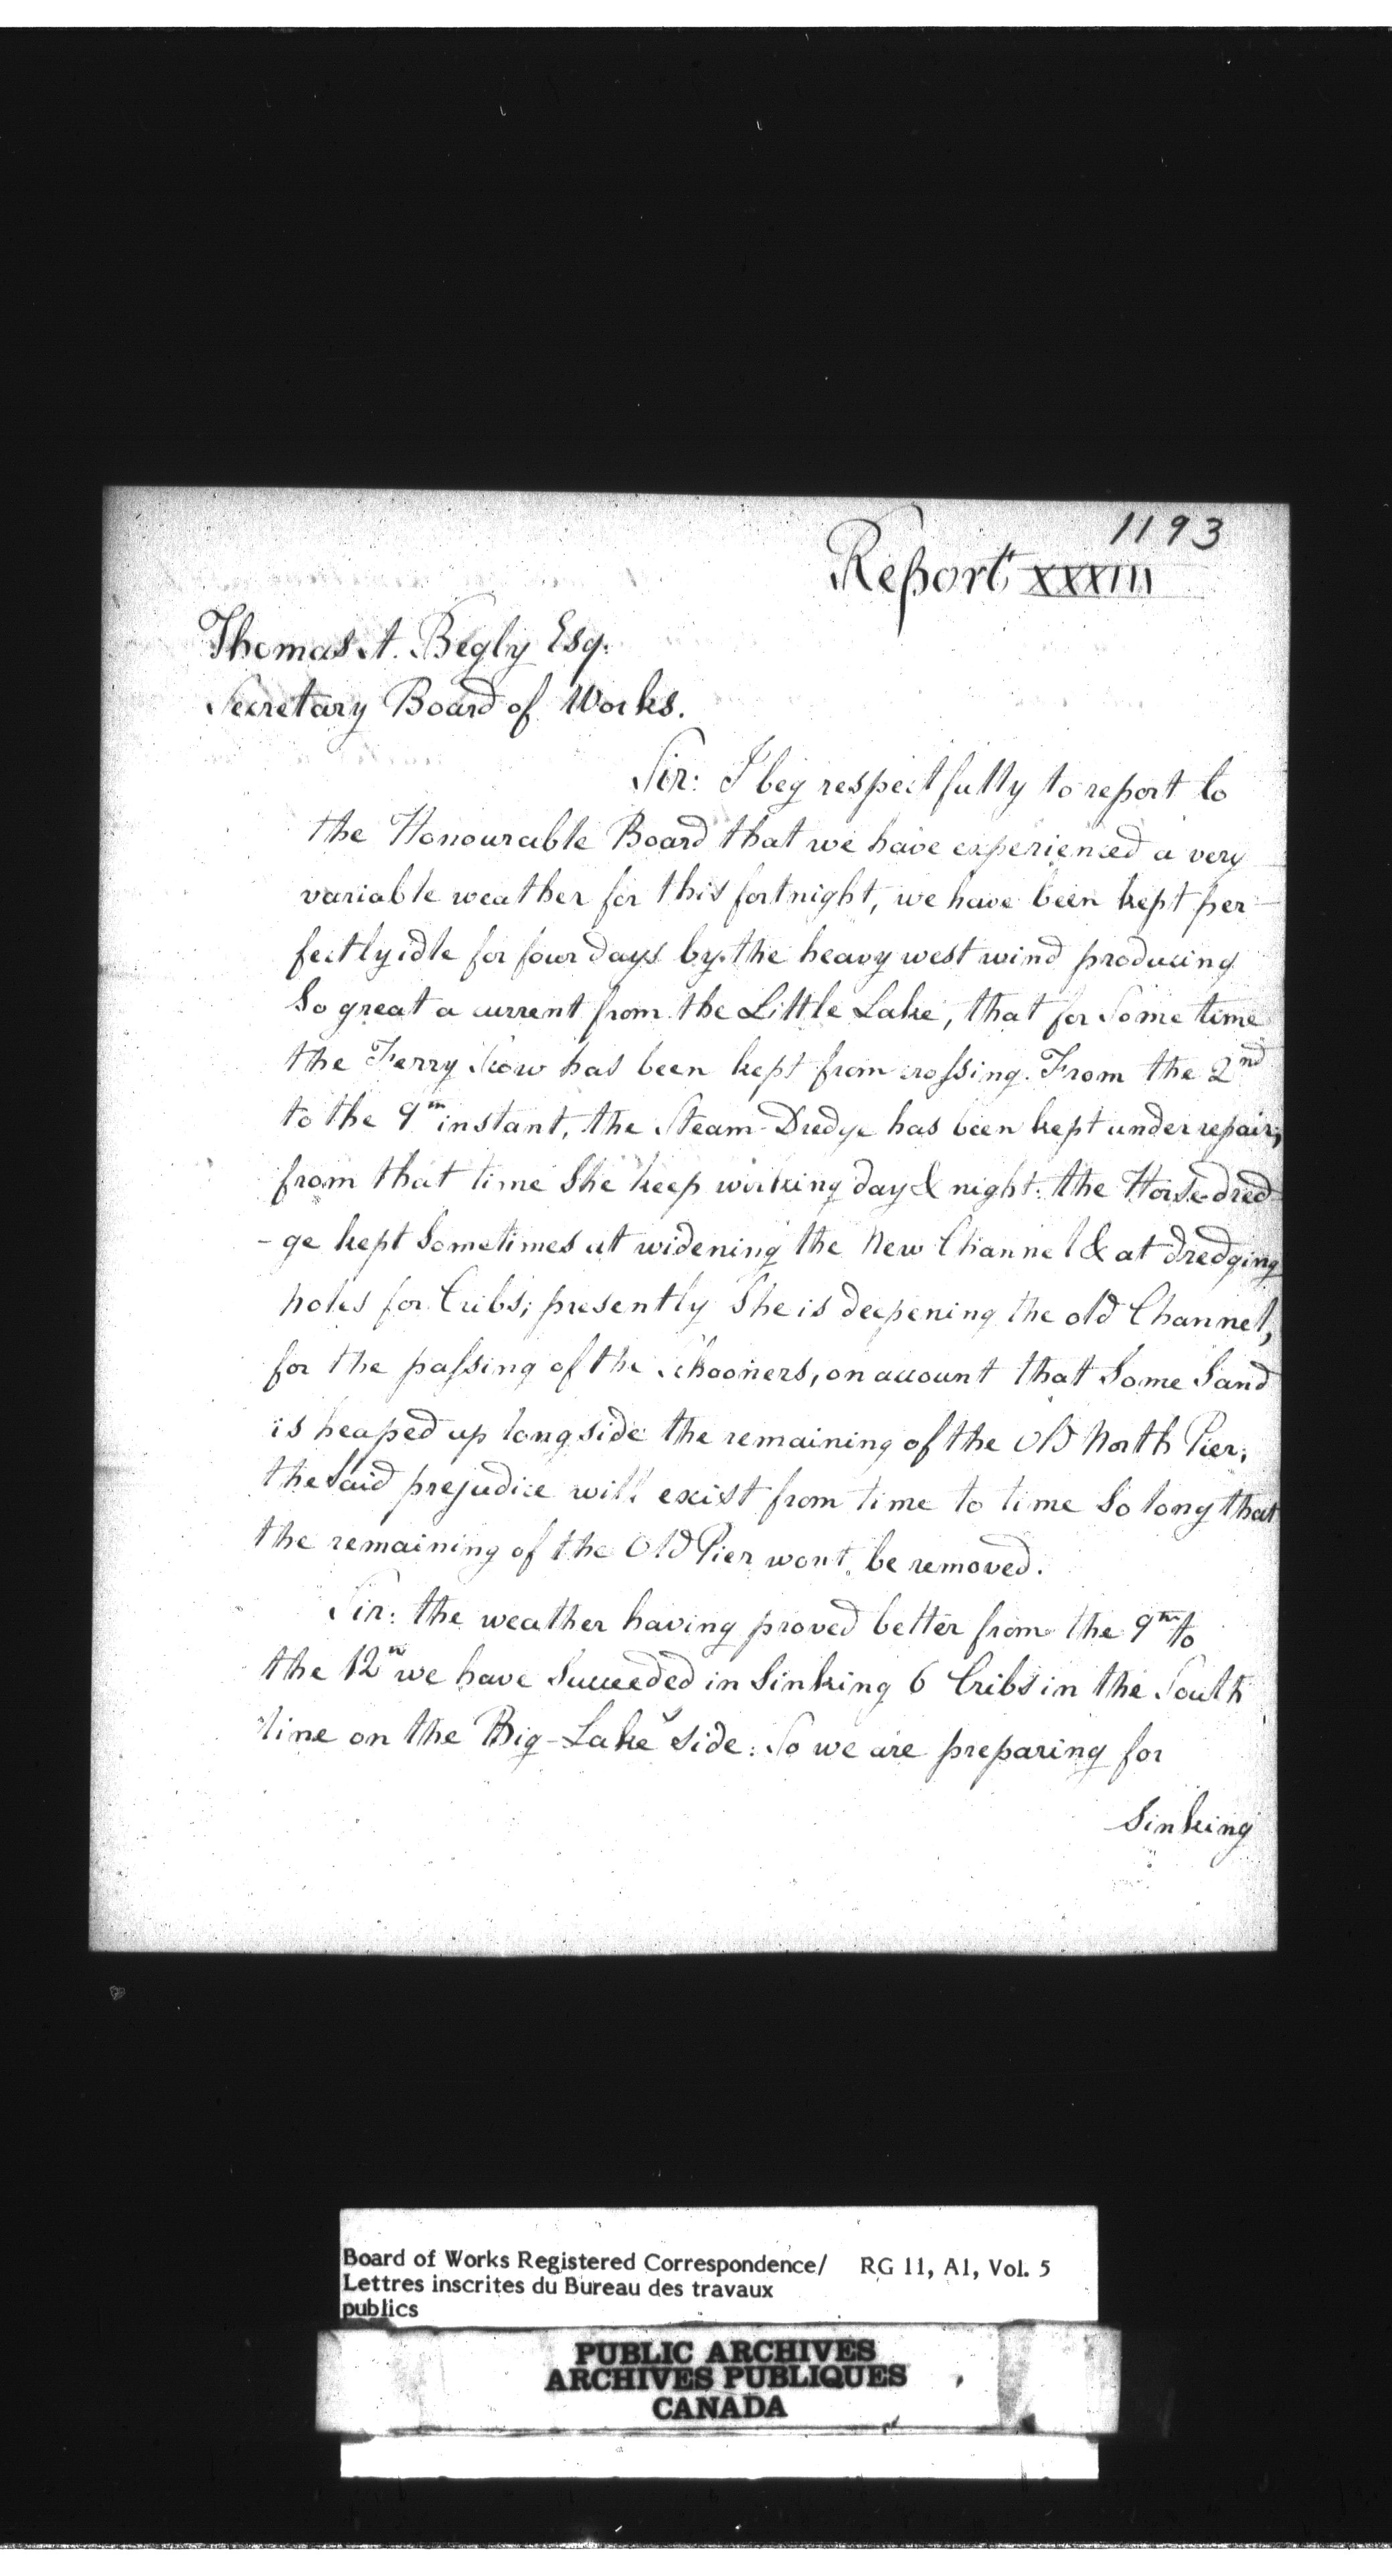 1193
Report XXXIII
Thomas A. Begly Esq.
Secretary Board of Works.
Sir: I beg respectfully to report to
the Honourable Board that we have experienced a very
variable weather for this fortnight, we have been kept per
fectly idle for four days by the heavy west wind producing
So great a current from the Little Lake, that for Some time
the Ferry Scow has been kept from crossing. From the 2nd
to the 9th instant, the Steam-Dredge has been kept under repair;
from that time She keep working day & night: the Horse dred
-ge kept Sometimes at widening the New Channel & at dredging
holes for Cribs; presently She is deepening the old Channel,
for the passing of the Schooners, on account that Some Sand
is heaped up longside the remaining of the Old North Pier;
the Said prejudice will exist from time to time So long that
the remaining of the Old Pier wont be removed.
Sir: the weather having proved better from the 9th to
the 12th we have Succeeded in Sinking 6 Cribs in the South
line on the Big-Lake side: So we are preparing for
Sinking
Board of Works Registered Correspondence/ RG 11, A1, Vol. 5
Lettres inscrites du Bureau des travaux
publics
PUBLIC ARCHIVES
ARCHIVES PUBLIQUES
CANADA